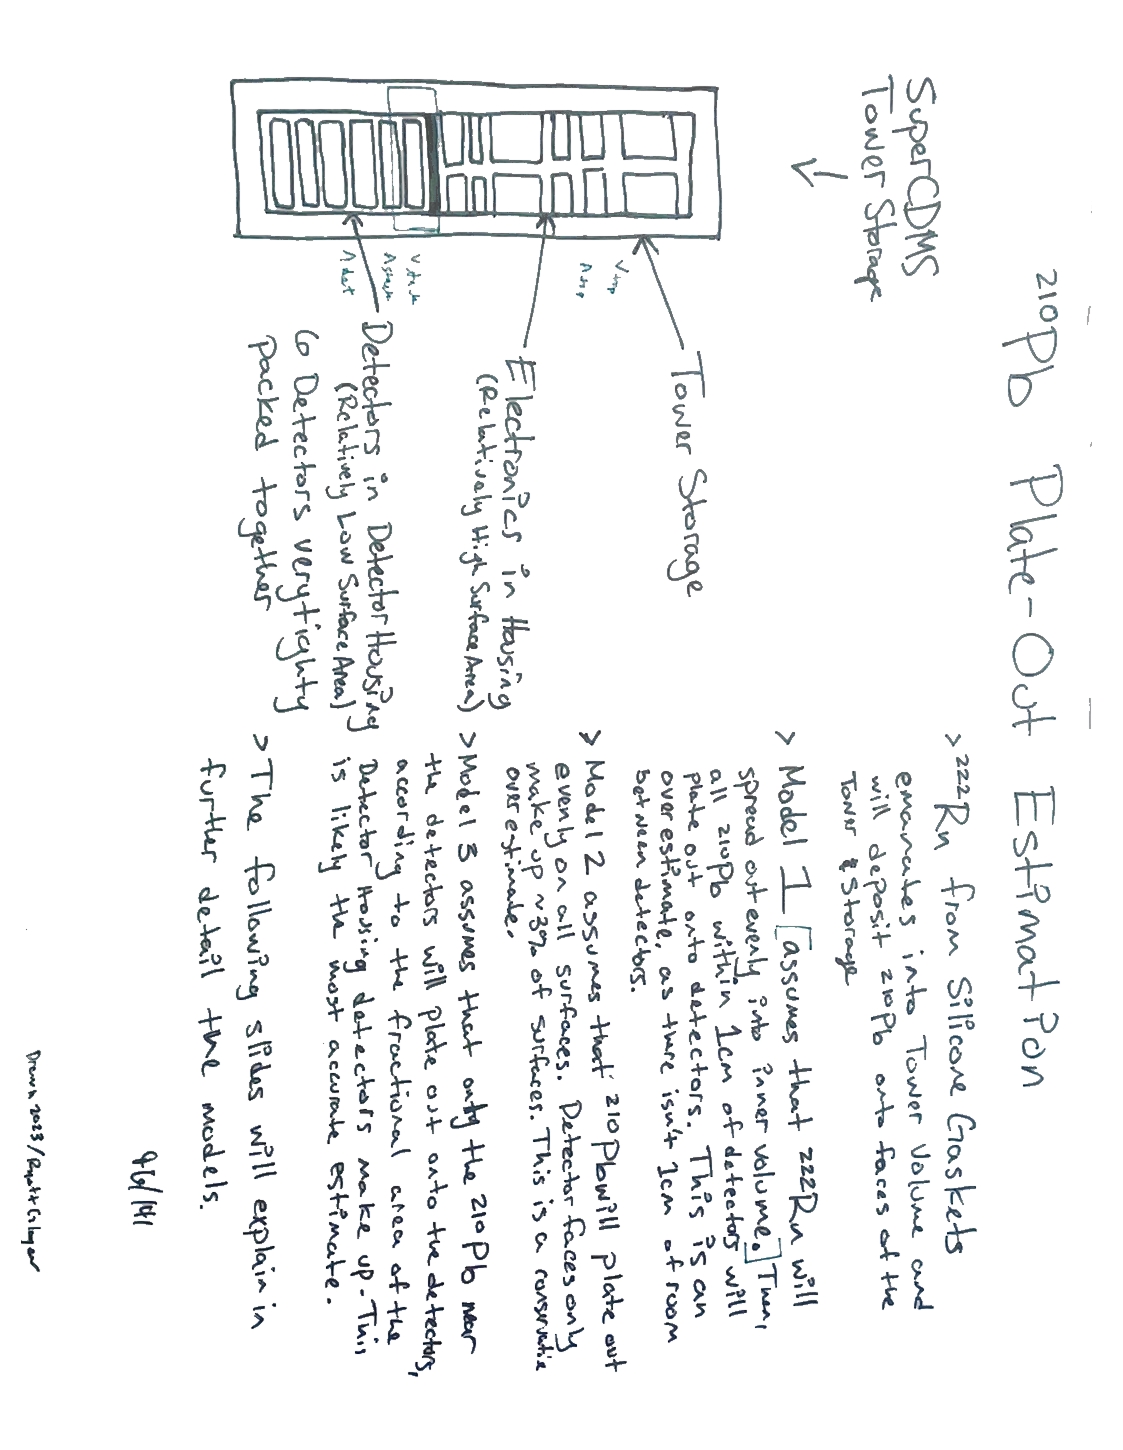 210Pb Plate-Out Estimation
SuperCDMS
Tower Storage
Tower Storage
Electronics in Housing
(Relatively High Surface Area)
Detectors in Detector Housing
(Relatively Low Surface Area)
6 Detectors very tighty
packed together
Vtop
Atop
Vstack
Astack
Adet
> 222Rn from Silicone Gaskets
emanates into Tower Volume and
will deposit 210Pb onto faces of the
Tower & Storage
> Model 1 [assumes that 222Rn will
spread out evenly into inner volume.] Then,
all 210Pb within 1cm of detectors will
plate out onto detectors. This is an
overestimate, as there isn't 1cm of room
between detectors.
> Model 2 assumes that 210Pb will plate out
evenly on all surfaces. Detector faces only
make up ~3% of surfaces. This is a conservative
overestimate.
> Model 3 assumes that only the 210Pb near
the detectors will plate out onto the detectors,
according to the fractional area of the
Detector Housing detectors make up. This
is likely the most accurate estimate.
> The following slides will explain in
further detail the models.
Drawn 2023/